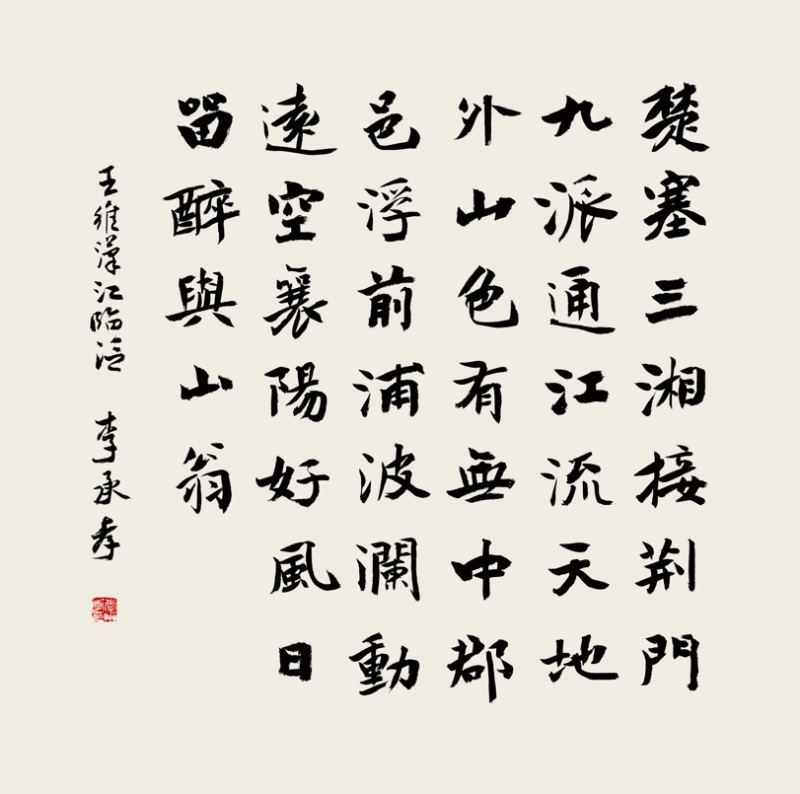 楚塞三湘接荆門
九派通江流天地
外山色有無中郡
邑浮前浦波瀾動
遠空襄陽好風日
留醉與山翁
王維漢江臨泛 李承孝